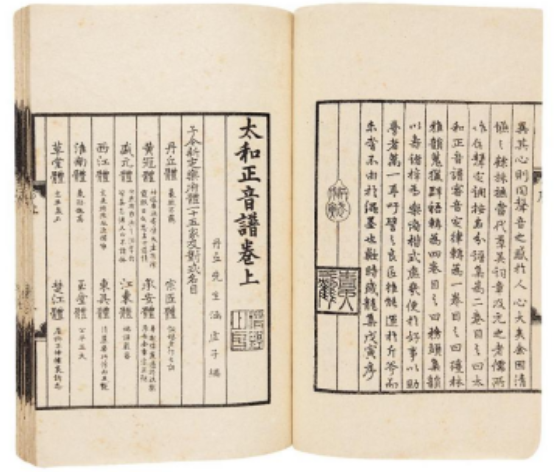 異其心則同聲音之感於人心大矣余因清
讌之餘採摭當代羣英詞章及元之老儒所
作依聲定調按名分譜集為二卷目之曰太
和正音譜審音定律輯為一卷目之曰瓊林
雅韻蒐獵群語輯為四卷目之曰務頭集韻
以壽諸梓為樂府楷式庶幾便於好事以助
學者萬一耳吁譬之良匠雖能運於斤斧而
未嘗不由於繩墨也歟時歲龍集戊寅序
太和正音譜卷上
丹丘先生涵虛子編
予今新定樂府體一十五家及對式名目
丹丘體 豪放不羈 宗匠體 詞林老作之詞
黃冠體 神遊廣漠寄情太虛有餐霞服日之思名曰道情 承安體 華觀偉麗過於佚樂承安金章宗正朔
盛元體 快然有雍熙之治字句皆無忌憚又曰不諱體 江東體 端謹嚴密
西江體 文采煥然風流儒雅 東吳體 清麗華巧浮而且艷
淮南體 氣勁趣高 玉堂體 公平正大
草堂體 志在泉石 楚江體 屈抑不伸攄衷訴志